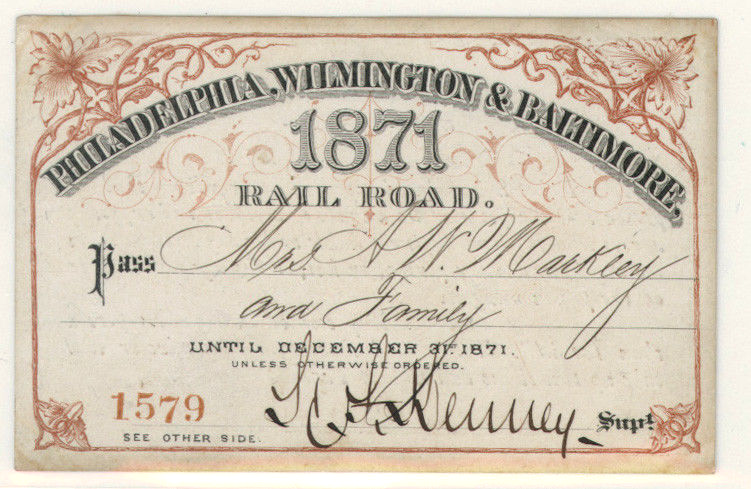 PHILADELPHIA, WILMINGTON & BALTIMORE,
1871
RAIL ROAD.
Pass Mrs. A W. Markley
and Family
UNTIL DECEMBER 31ST 1871.
UNLESS OTHERWISE ORDERED.
1579 H. F. Kenney Supt
SEE OTHER SIDE.